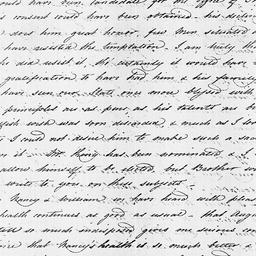 could have been candidate for the
consent could have been obtained. his decision
does him great honor, few men situated
have resisted the temptation. I am truly
he did resist it. He certainly it would have
gratification to have had him & his family
have seen our State once more blessed with
principles are as pure as his talents are
wish was soon decided, & much as I
I could not desire him to make such a
it. Mr. King has been nominated &
allow himself to be elected, but Brother
write to you on these subjects.
Nancy & William we have heard with
health continues as good as usual - that
so much indisposed gives me serious
that Nancy's health is so much better &